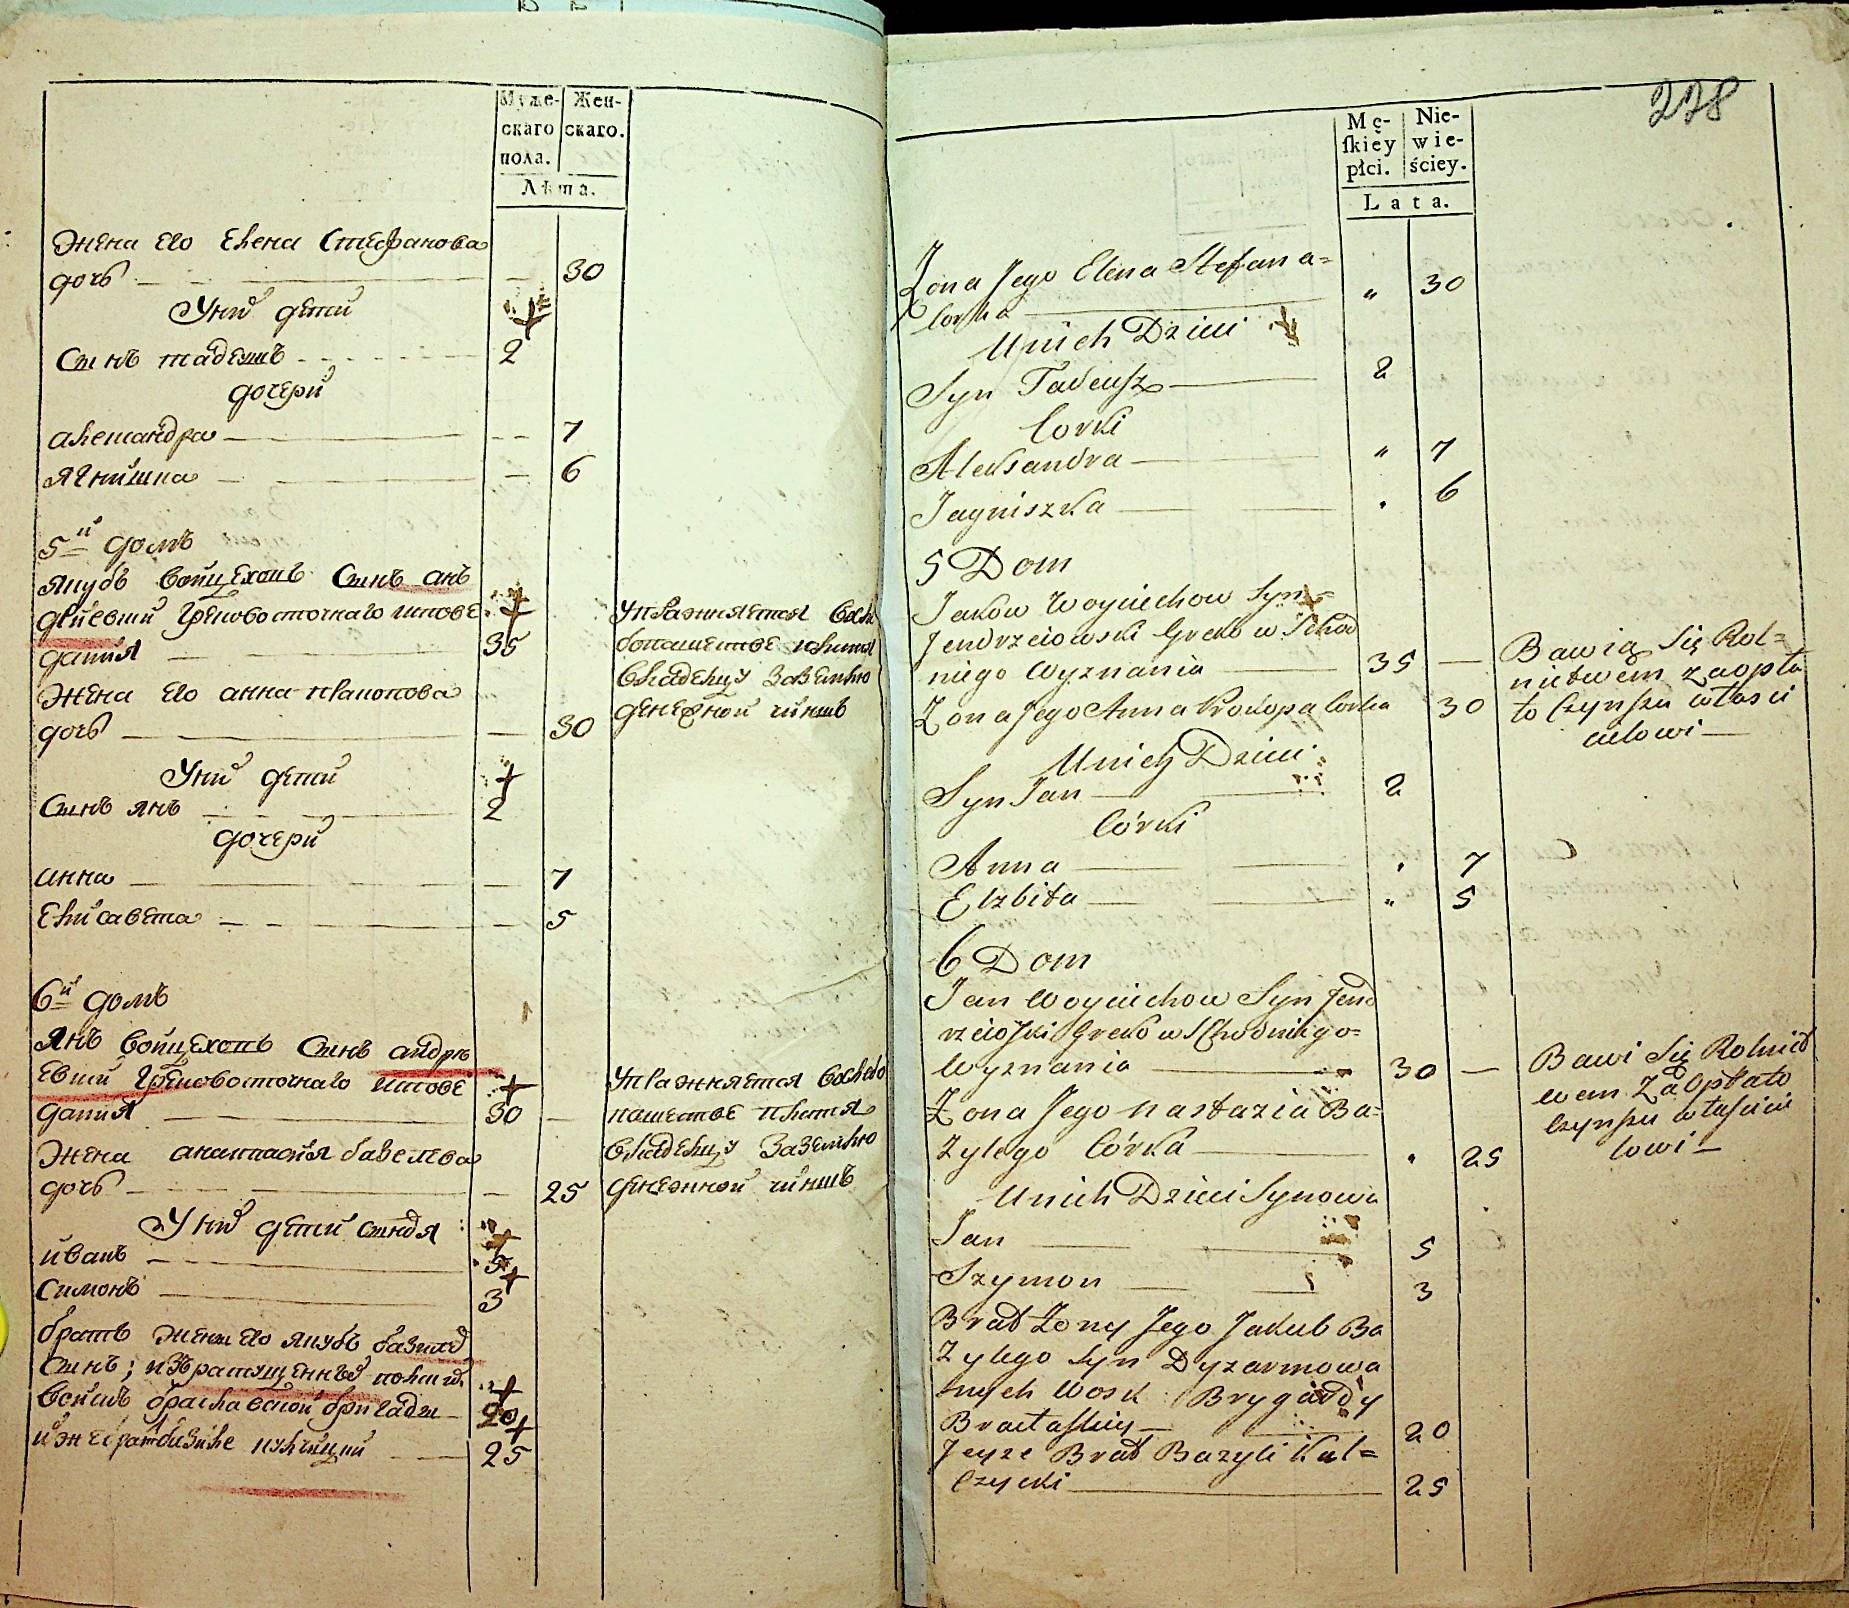 Муже- Жен-
скаго скаго.
пола.
Лѣта.
Жена его Елена Стефанова
дочь 30
У них дети
Сынъ тадеушъ 2
дочери
александра 7
ягнишка 6
5й домъ
якубъ войцеховъ Сынъ ан
дреевский грековосточнаго испове
дания 35
упражняется вхле
бопашестве и платя
владельцу за землю
денежной чиншъ
Жена его анна прокопова
дочь 30
У них дети
Сынъ янъ 2
дочери
анна 7
Елисавета 5
6й домъ
Янъ войцеховъ Сынъ андре
евский грековосточнаго испове
дания 30
упражняется вхлебо
пашестве платя
владельцу за землю
денежной чиншъ
Жена анастасия базилева
дочь 25
У них дети Сыновя
иванъ 5
Симонъ 3
братъ жены его якубъ базилев
Сынъ;
войскъ браславской бригады 20
25
228
Mę- Nie-
ſkiey wie-
płci. ściey.
Lata.
Zona Jego Elena Stefana=
Corka " 30
U nich Dzieci
Syn Tadeusz 2
Corki
Aleksandra " 7
Jagniszka . 6
5 Dom
Jakow Woyciechow Syn
Jendrzeiowski Greko w Schod
niego Wyznania 35
Bawią Się Rol=
nictwem za opła
to Czynszu właści
cielowi
Zona Jego Anna Prokopa Corka 30
U nich Dzieci
Syn Jan 2
Córki
Anna . 7
Elzbita " 5
6 Dom
Jan Woyciechow Syn Jend
rzeioſki Greko w Schodniego=
Wyznania 30
Bawi Się Rolnict
wem Za Opłato
Czynszu właścicie
lowi
Zona Jego Nastazia Ba=
Zylego Córka . 25
U nich Dzieci Synowie
Jan 5
Szymon 3
Brat Żony Jego Jakub Ba
Zylego Syn Dyzarmowa
nych Wosk Brygády
Bracłaſkiey 20
Jeyze Brat Bazyli Kul=
Czycki 25